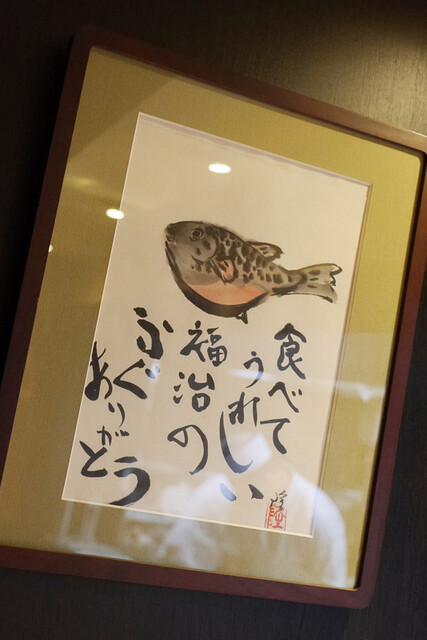 食べて
うれしい
福治の
ふぐ
ありがとう